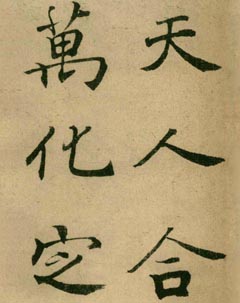 天人合
萬化定